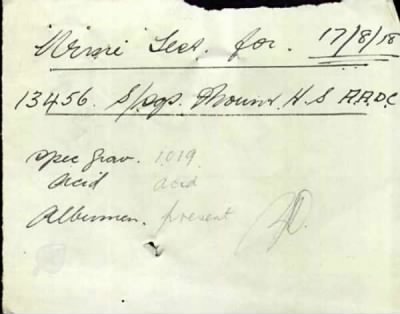 Urine Test. for. 17/8/18
13456. S/Sgt. H. S A.A.D.C
Spec Grav. 1.019.
Acid acid
Albumen. present